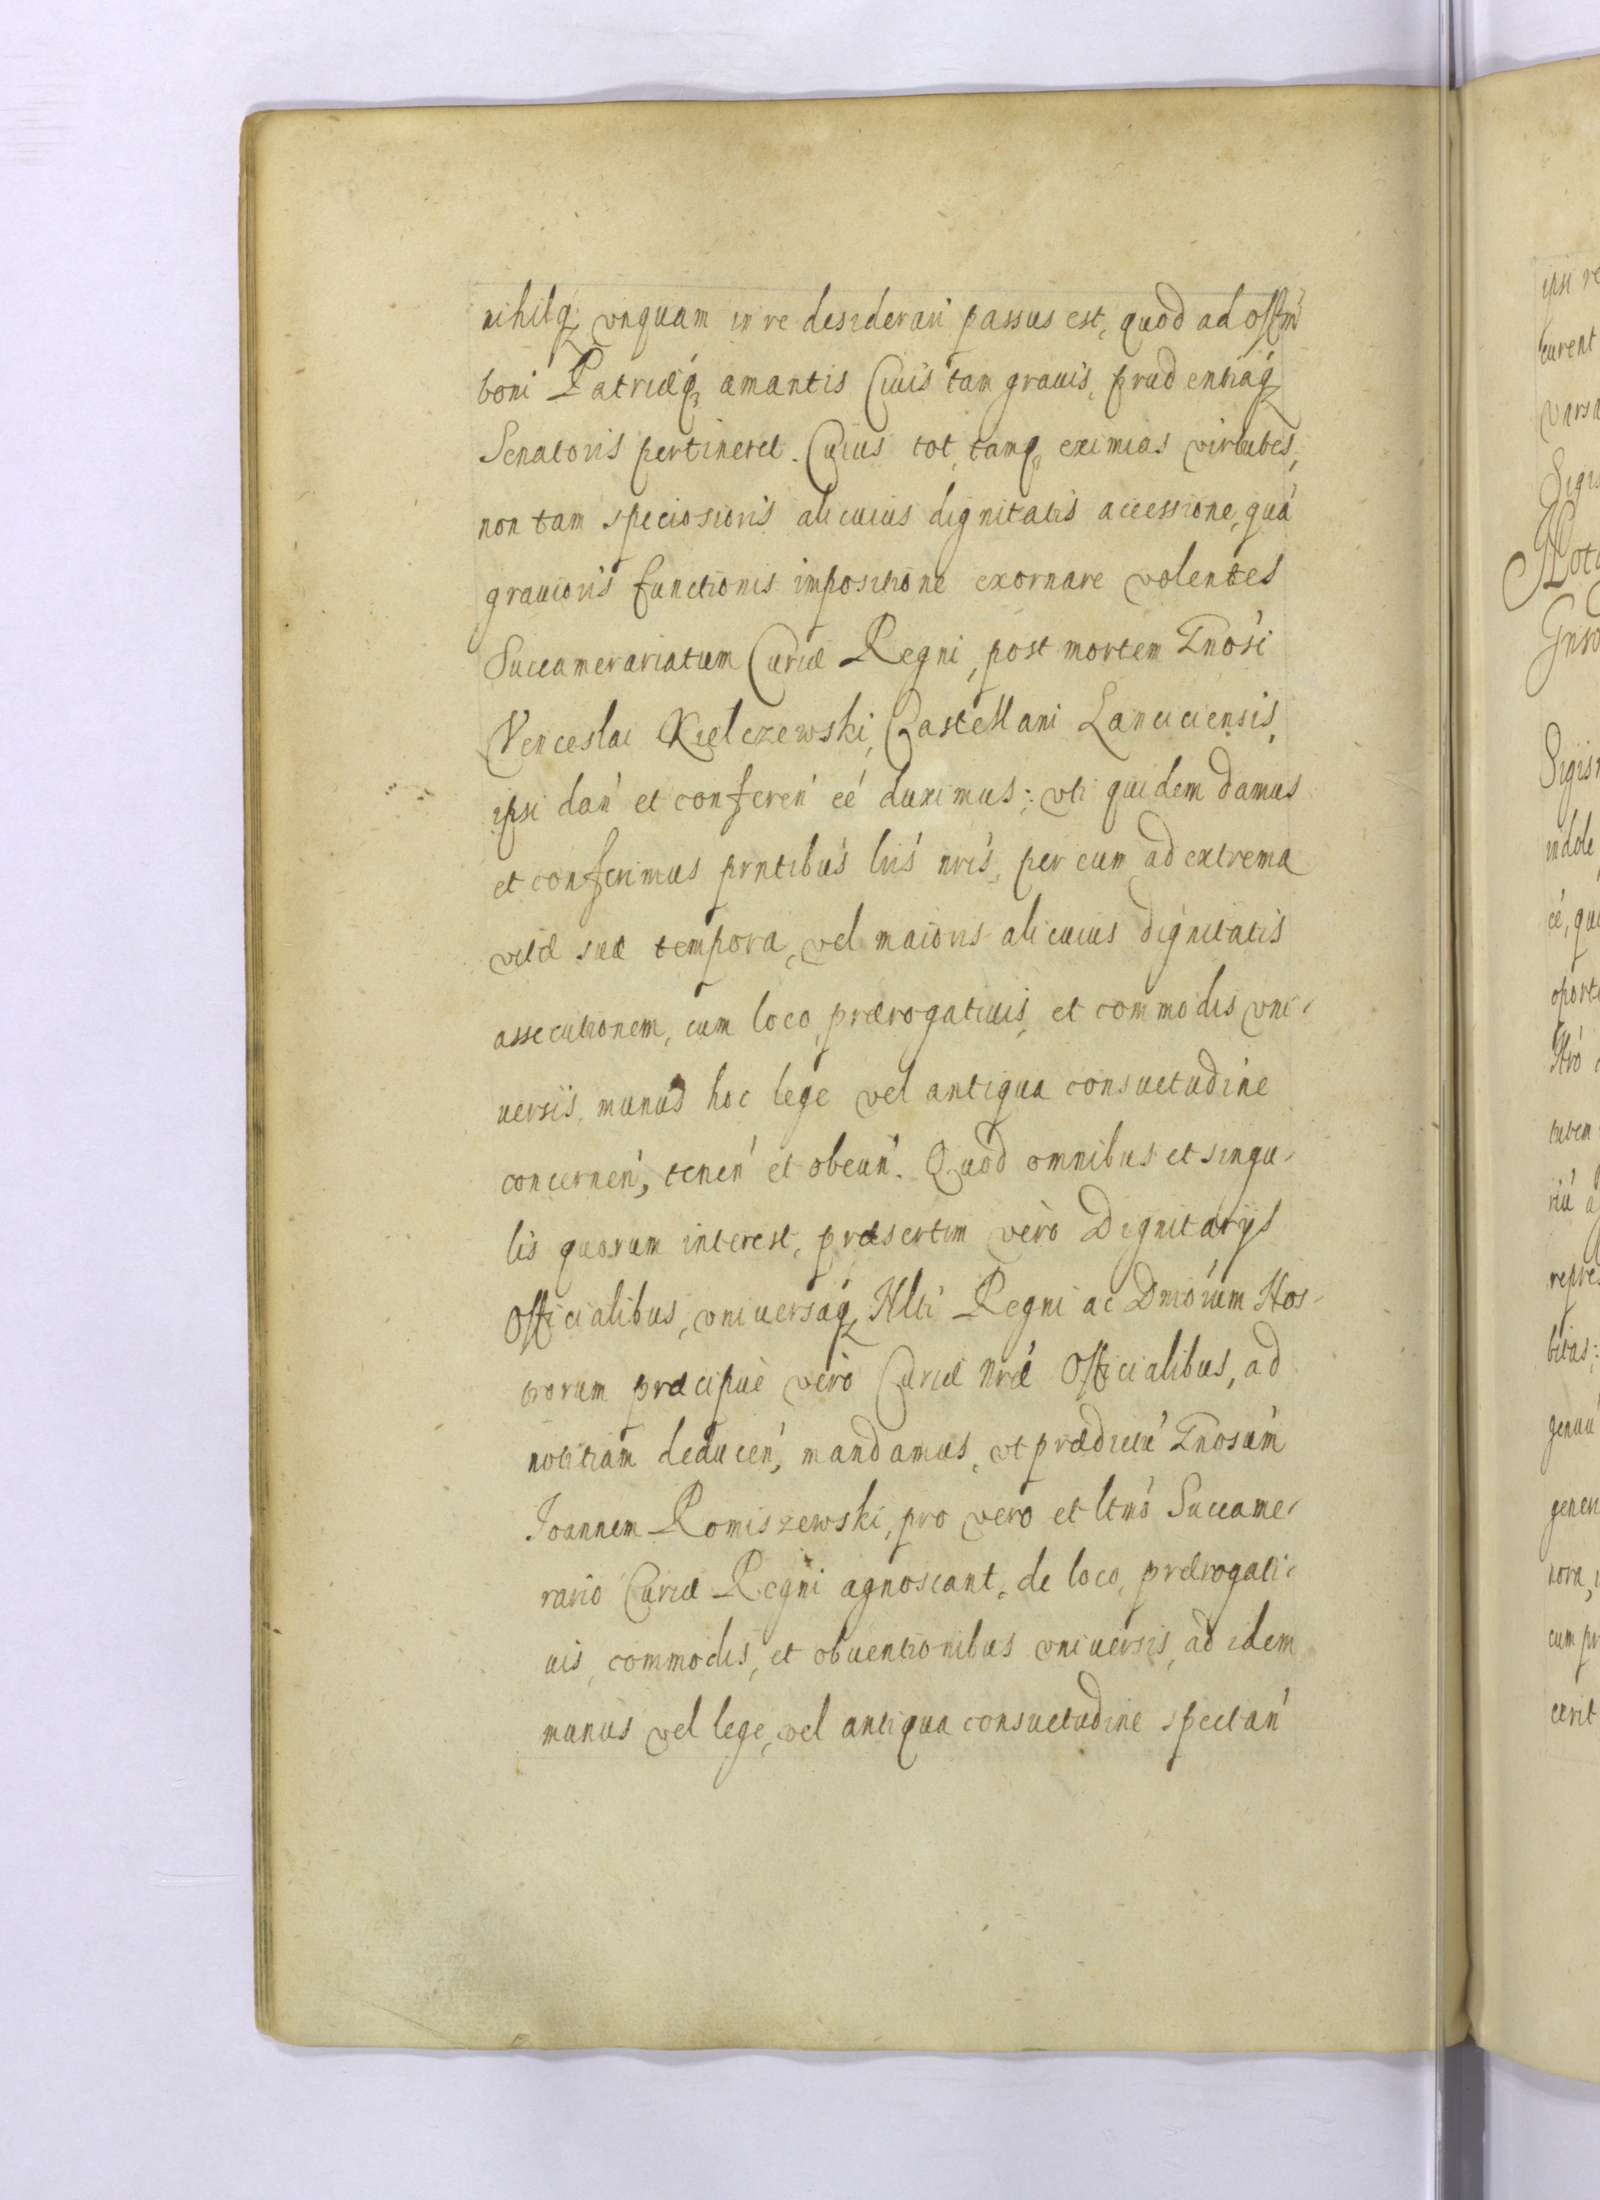 nihilq́; vnquam in re desiderari passus est, quod ad offm̃
boni Patriæq́; amantis Ciuis tam grauis, prudentiáq́;
Senatoris pertineret. Cuius tot, tamq́; eximias virtutes,
non tam speciosioris alicuius dignitatis accessione, quá
grauioris functionis impositione exornare volentes
Succamerariatum Curiæ Regni, post mortem Gnosi
Venceslai Kielczewski, Castellani Lanciciensis,
ipsi dań et confereń eé duximus: vti quidem damus
et conferimus prntibús lris nris, per eum ad extrema
vitæ suæ tempora, vel maioris alicuius dignitatis
assecutionem, cum loco, prærogatiuis, et commodis vni-
uersis, munus hoc lege vel antiqua consuetudine
concerneń, teneń et obeuń. Quod omnibus et singu-
lis quorum interest, præsertim verò Dignitarijs
Officialibus, vniuersáq́; Nlti Regni ac Dnióium Nos-
trorum præcipuè verò Curiæ nræ Officialibus, ad
notitiam deduceń, mandamus, vt prædictú Gnosúm
Joannem Romiszewski, pro vero et ltmó Succame-
rario Curiæ Regni agnoscant, de loco, prærogati-
uis, commodis, et obuentionibus vniuersis, ad idem
munus vel lege, vel antiqua consuetudine spectań
ipsi re
curent
Varsa
Sigis
Sigis
indole
eé, qui
oporte
repres
bitas:
genuú
gener
cum pr